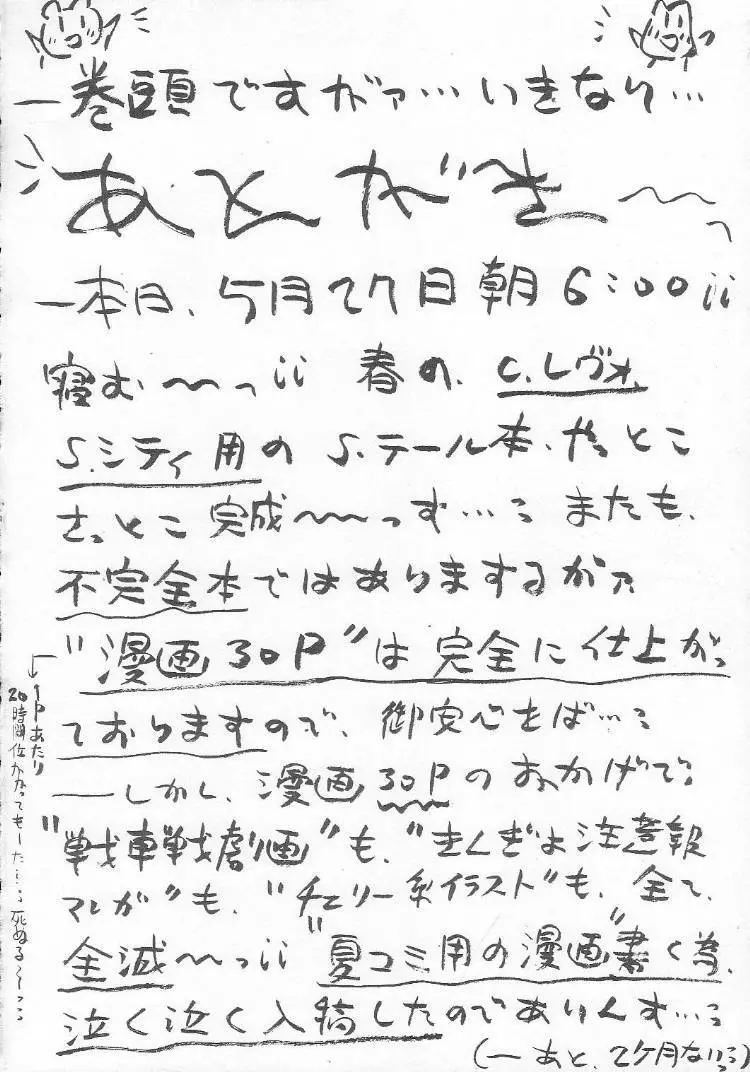 一巻頭ですがァ…いきなり…
あとがき〜〜っ
一本日、5月27日朝6:00¡¡
寝む〜〜っ¡¡ 春の、C.レヴォ、
S.シティ用のS.テール本、やっとこ
さっとこ完成〜〜〜っす…: またも、
不完全本ではありまするが:
"漫画30P"は完全に仕上がっ
ておりますので、御安心をば…:
──しかし、漫画30Pのおかげで:
"戦車戦劇画"も、"きんぎょ注意報
マンガ"も、"チェリー系イラスト"も、全て、
全滅〜〜っ¡¡ "夏コミ用の漫画"書く為、
泣く泣く入稿したのでありんす…:
(一あと、2ケ月ないっ:)
←1Pあたり
20時間位かかってもーた…: 死ぬる〜っ: